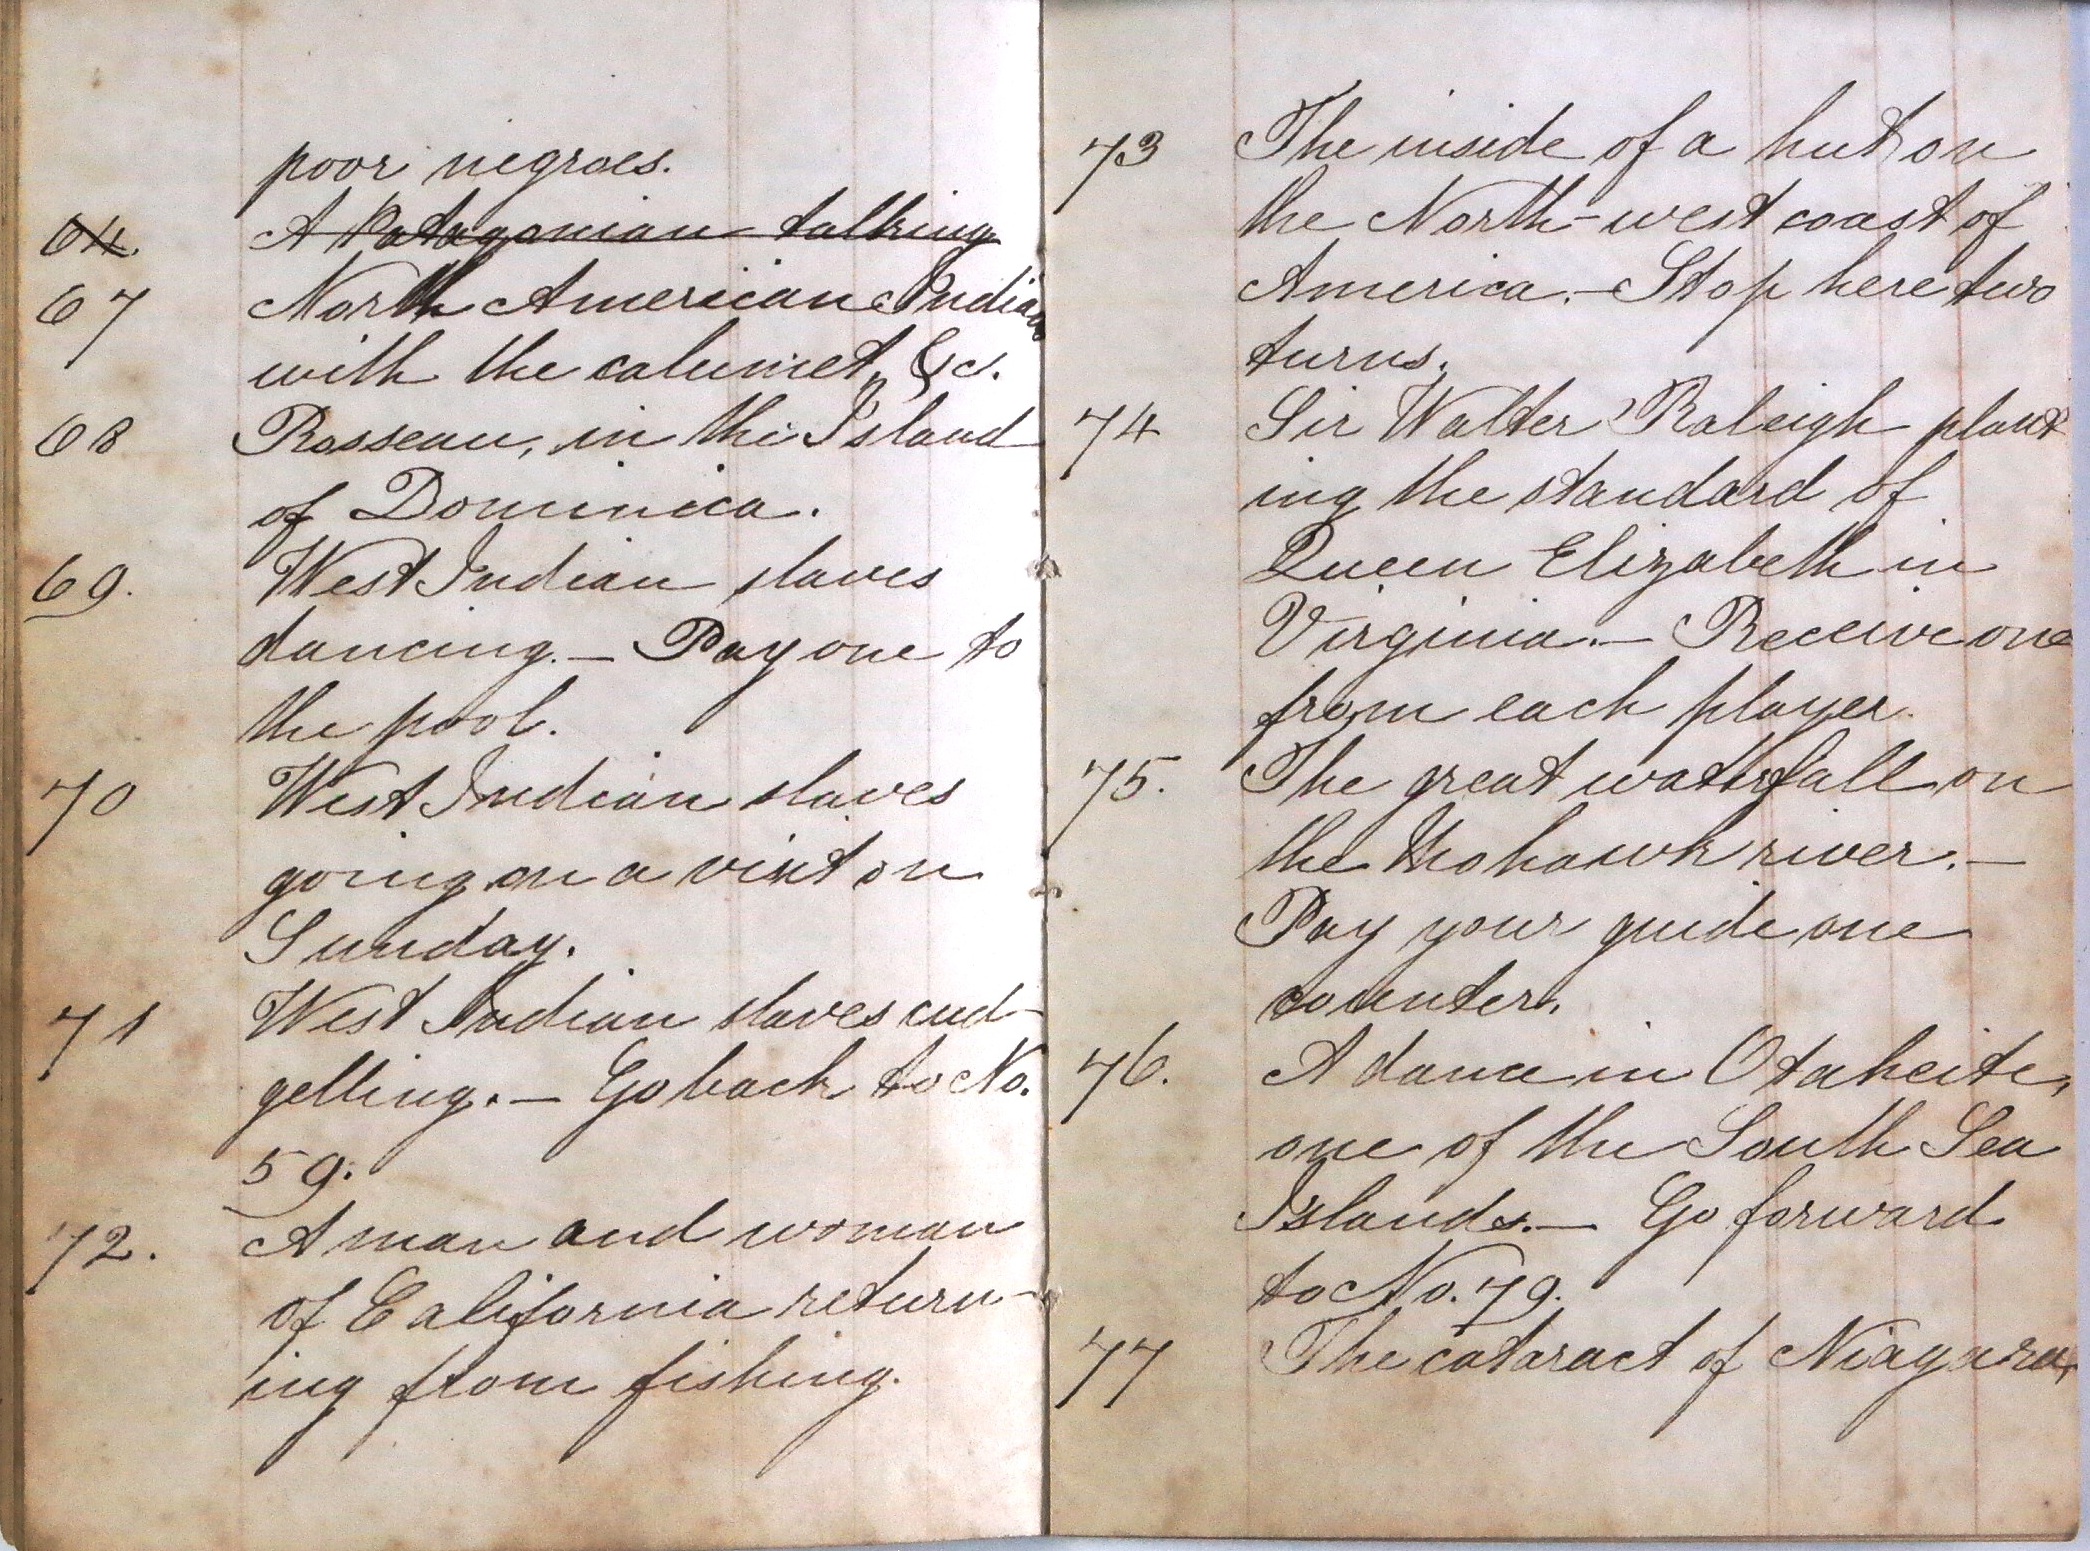 poor negroes.
64. A Patagonian talking
67 North American Indians
with the calumet, &c.
68 Rosseau, in the Island
of Dominica.
69. West Indian slaves
dancing. — Pay one to
the pool.
70 West Indian slaves
going on a visit on
Sunday.
71 West Indian slaves cud-
gelling. — Go back to No.
59.
72. A man and woman
of California return-
ing from fishing.
73 The inside of a hut on
the North-west coast of
America. — Stop here two
turns.
74 Sir Walter Raleigh plant
ing the standard of
Queen Elizabeth in
Virginia. — Receive one
from each player.
75. The great waterfall on
the Mohawk river. —
Pay your guide one
counter.
76. A dance in Otaheite,
one of the South Sea
Islands. — Go forward
to No. 79.
77 The cataract of Niagara,